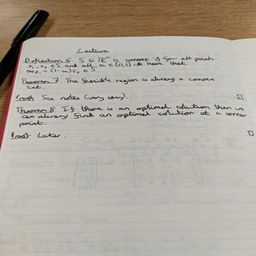 Lecture
Definition 6 S ⊆ ℝⁿ is convex if for all point
x₁, x₂ ∈ S and all α ∈ [0,1] we have that
αx₁ + (1-α)x₂ ∈ S
Theorem 7 The feasible region is always a convex
set.
Proof See notes (very easy). □
Theorem 8 If there is an optimal solution then we
can always find an optimal solution at a corner
point.
Proof Later. □